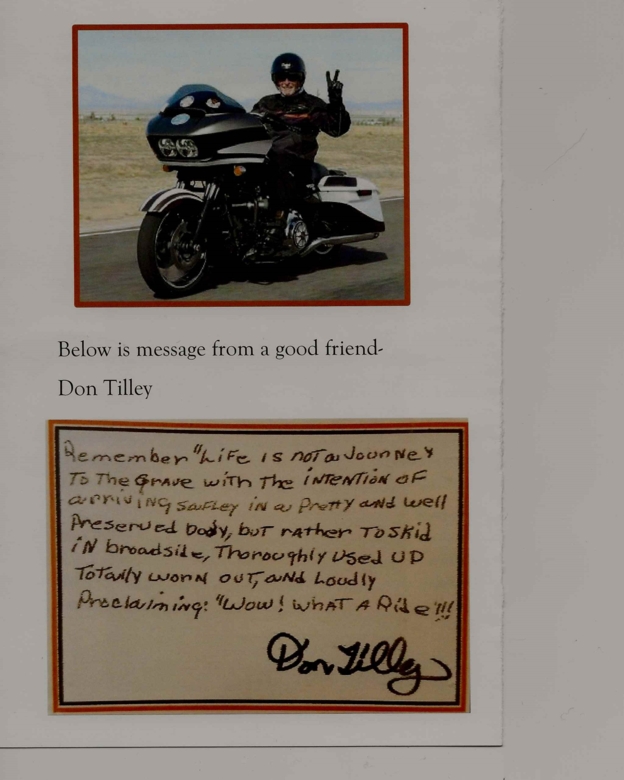 Below is message from a good friend-
Don Tilley
Remember "Life is not a Journey
To The Grave with The INTENTION OF
arriving safley in a Pretty and well
Preserved body, but rather To Skid
iN broadside, Thoroughly Used UP
Totally worn out, and Loudly
Proclaiming: "Wow! What A Ride"!!!
Don Tilley